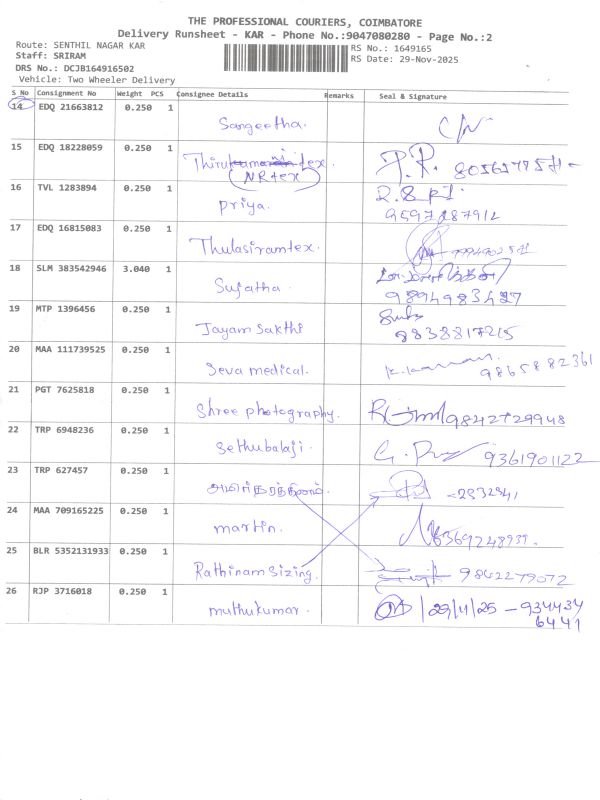 THE PROFESSIONAL COURIERS, COIMBATORE
Delivery Runsheet - KAR - Phone No.:9047080280 - Page No.:2
Route: SENTHIL NAGAR KAR
Staff: SRIRAM
DRS No.: DCJB164916502
Vehicle: Two Wheeler Delivery
RS No.: 1649165
RS Date: 29-Nov-2025
S No Consignment No Weight PCS Consignee Details Remarks Seal & Signature
14 EDQ 21663812 0.250 1 Sangeetha.
15 EDQ 18228059 0.250 1 tex.
NRtex
16 TVL 1283894 0.250 1 priya.
9597287912
17 EDQ 16815083 0.250 1 Thulasiramtex.
18 SLM 383542946 3.040 1 Sujatha.
9894983427
19 MTP 1396456 0.250 1 Jayam Sakthi
8838817215
20 MAA 111739525 0.250 1 Seva medical. 9865882361
21 PGT 7625818 0.250 1 Shree photography. 9842729948
22 TRP 6948236 0.250 1 Sethubalaji. 9361901122
23 TRP 627457 0.250 1 -2332941
24 MAA 709165225 0.250 1 martin.
25 BLR 5352131933 0.250 1 Rathinam Sizing. 9842279072
26 RJP 3716018 0.250 1 muthukumar. 29/11/25 - 934434
6441